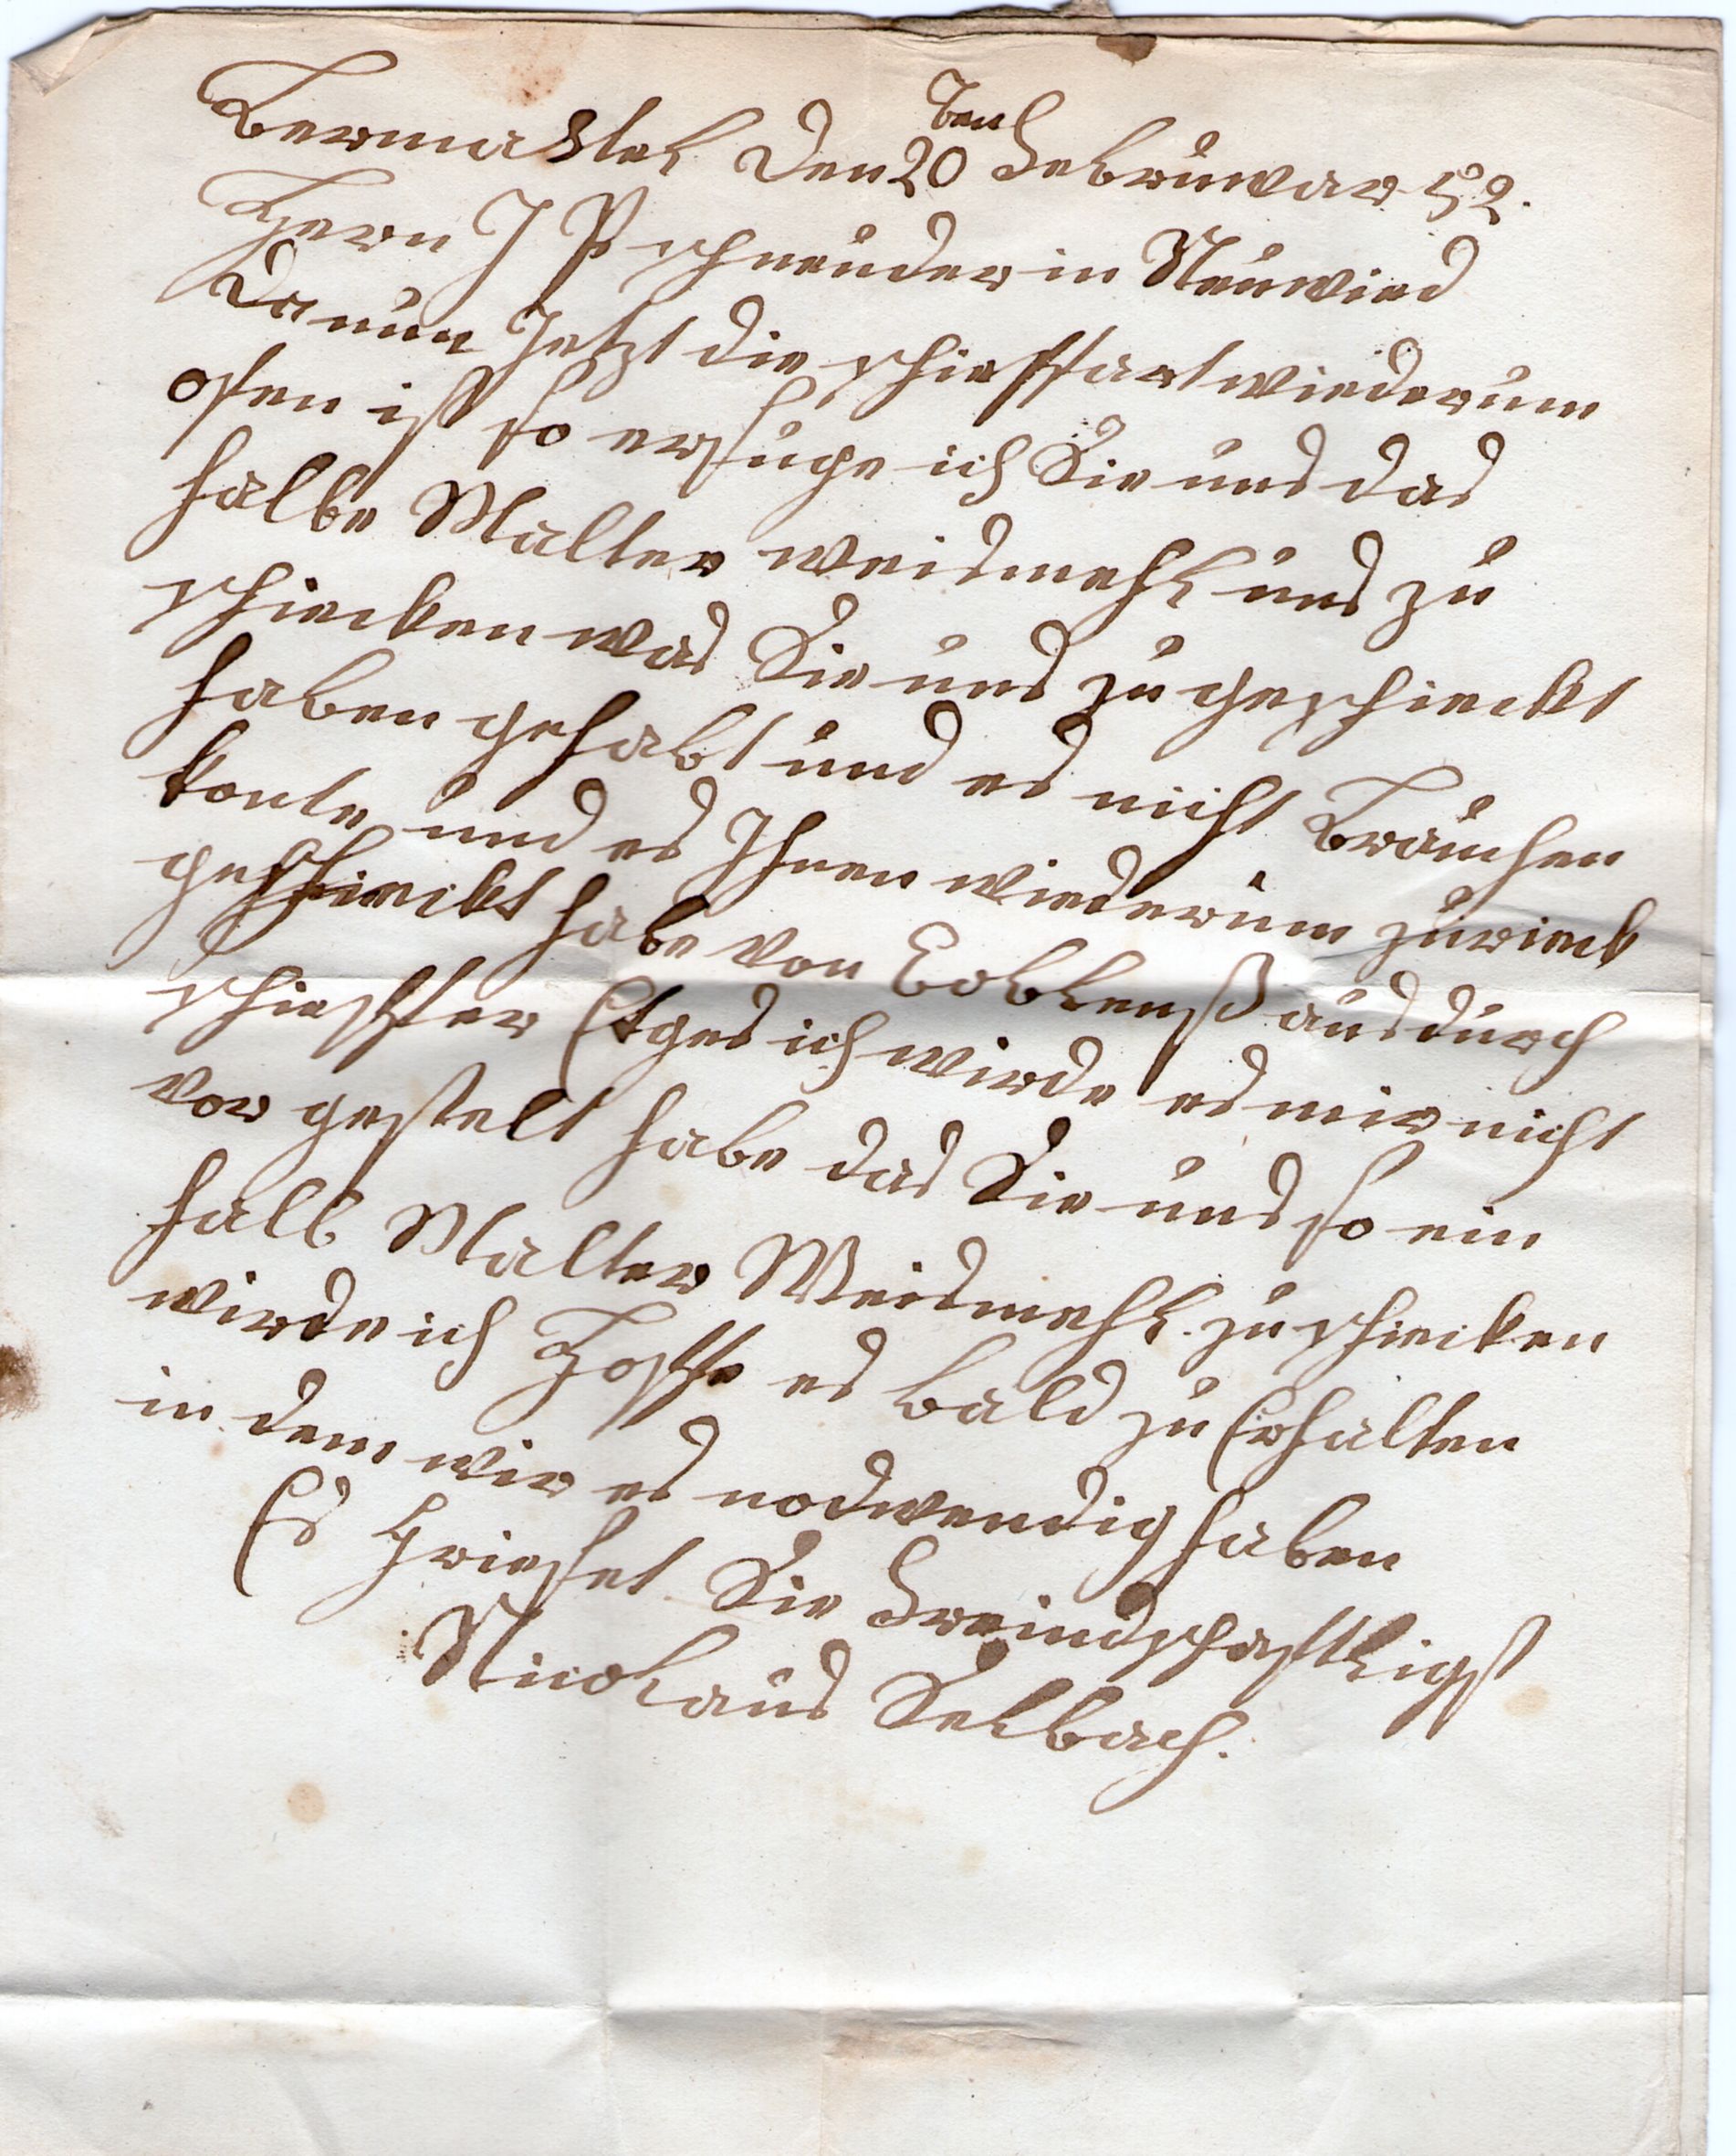 Berncastel den 20ten Februwar 52.
Hern J P schneuder in Neuwied
Da nun Jetzt die schieffart wiederum
ofen ist so ersuge ich Sie uns das
halbe Malter weismehl uns zu
schiecken was Sie uns zu geschieckt
haben gehabt und es nicht Brauchen
konte und es Ihnen wiederum zurieck
geschieckt habe von Coblenß aus durch
schieffer Etges ich wirde es mir nicht
vor gestelt habe das Sie uns so ein
halb Malter Weismehl zu schiecken
wirde ich Hoffe es bald zu Erhalten
in dem wir es nodwendig haben
Es Griesset Sie Freindschaftligst
Nicolaus Selbach.